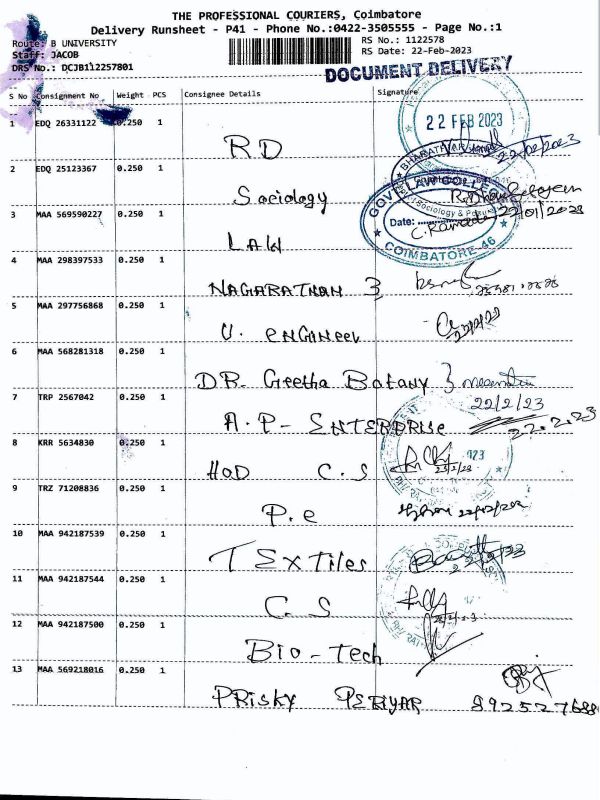 THE PROFESSIONAL COURIERS, Coimbatore
Delivery Runsheet - P41 - Phone No.:0422-3505555 - Page No.:1
Route: B UNIVERSITY
RS No.: 1122578
Staff: JACOB
RS Date: 22-Feb-2023
DRS No.: DCJB112257801
DOCUMENT DELIVERY
S No Consignment No Weight PCS Consignee Details Signature
1 EDQ 26331122 0.250 1 RD
22 FEB 2023
22/02/2023
2 EDQ 25123367 0.250 1 Sociology
GOVT LAW COLLEGE
Date:
COIMBATORE 46
3 MAA 569590227 0.250 1 LAW
22/01/2023
4 MAA 298397533 0.250 1 NAGARATHAN 3
5 MAA 297756868 0.250 1 U. ENGINEER
6 MAA 568281318 0.250 1 DR. Geetha Botany 3
7 TRP 2567042 0.250 1 A.P- ENTERPRISE
22/2/23
22.2.23
8 KRR 5634830 0.250 1 HOD C.S
9 TRZ 71208836 0.250 1 P.e
10 MAA 942187539 0.250 1 TExTiles
11 MAA 942187544 0.250 1 C.S
12 MAA 942187500 0.250 1 Bio-Tech
13 MAA 569218016 0.250 1 PRISKY PERIYAR